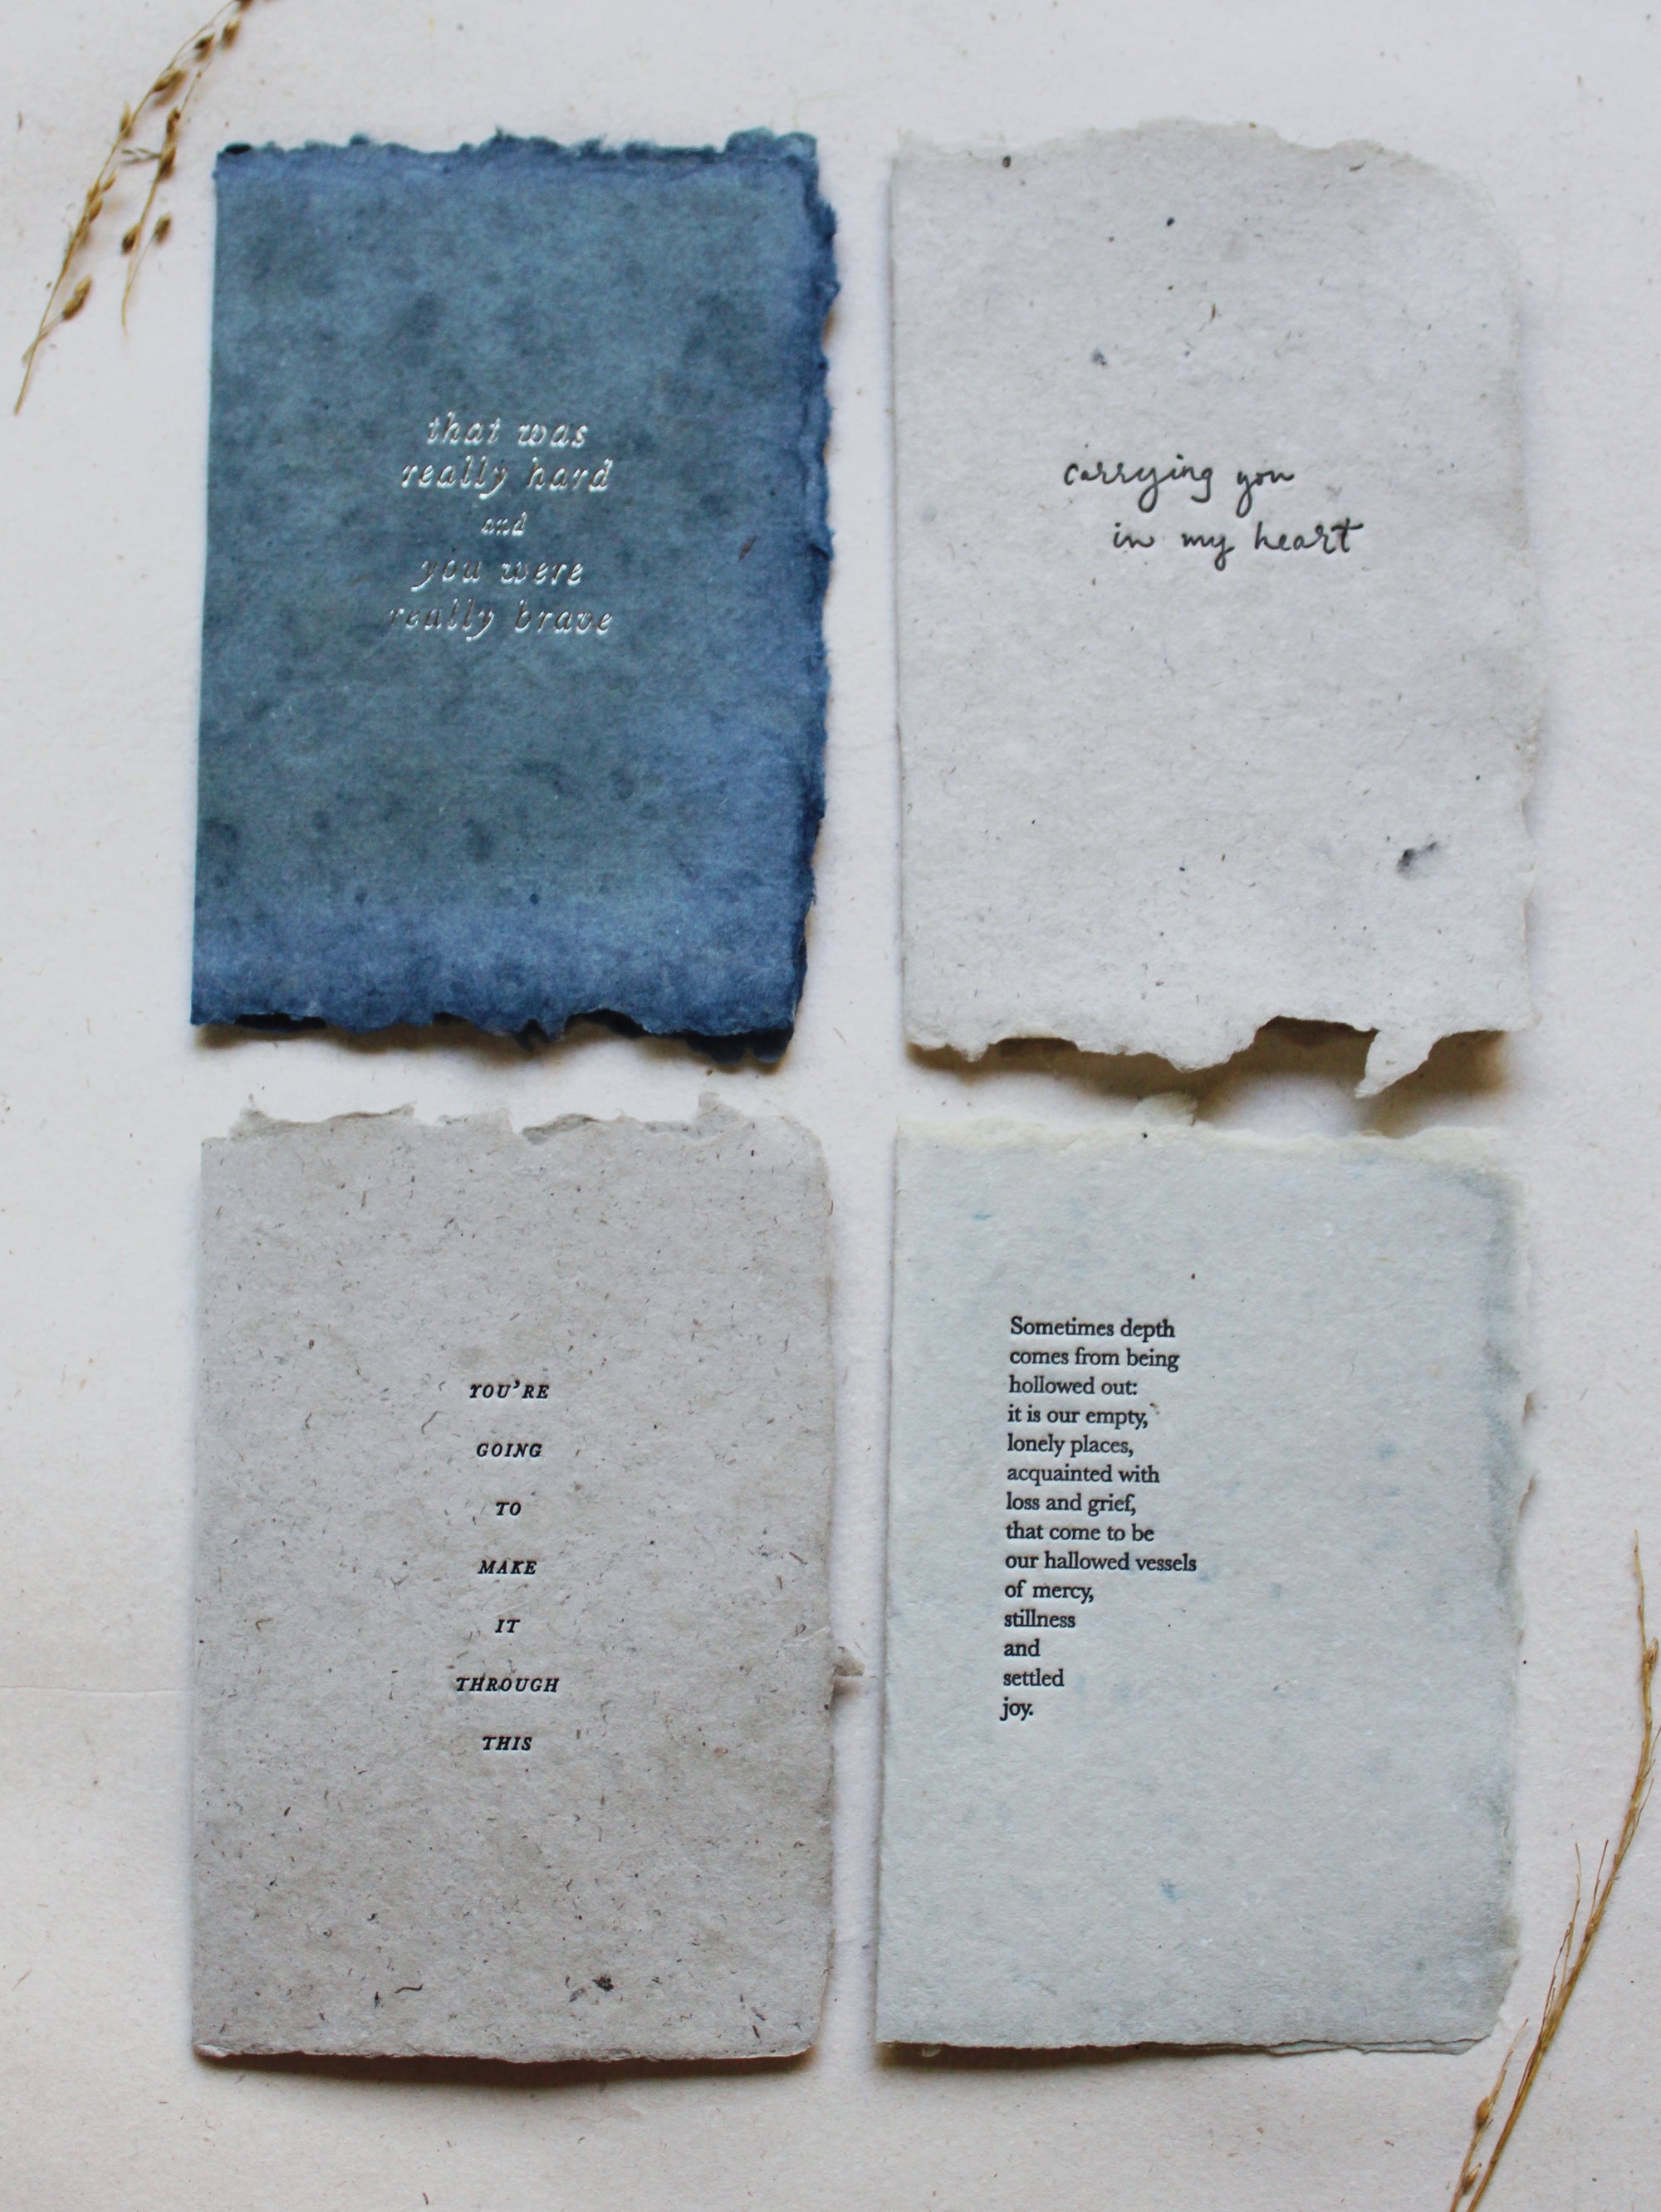 that was
really hard
and
you were
really brave
carrying you
in my heart
YOU'RE
GOING
TO
MAKE
IT
THROUGH
THIS
Sometimes depth
comes from being
hollowed out:
it is our empty,
lonely places,
acquainted with
loss and grief,
that come to be
our hallowed vessels
of mercy,
stillness
and
settled
joy.